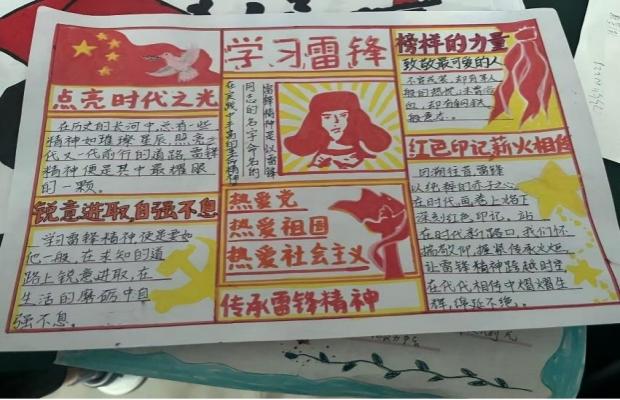 学习雷锋
点亮时代之光
在历史的长河中,总有一些
精神如璀璨星辰,照亮一
代又一代前行的道路,雷锋
精神便是其中最耀眼
的一颗。
锐意进取自强不息
学习雷锋精神,便是要如
他一般,在未知的道
路上锐意进取,在
生活的磨砺中自
强不息。
雷锋精神是以雷锋
同志的名字命名的
热爱党
热爱祖国
热爱社会主义
传承雷锋精神
榜样的力量
致敬最可爱的人
不着戎装,却有军人
红色印记薪火相传
回溯往昔,雷锋
以纯粹的赤子之心
在时代画卷上烙下
深刻红色印记。站
在时代彩路口,我们怀
揣敬仰,握紧传承火炬
让雷锋精神跨越时空
在代代相传中熠熠生
辉,绵延不绝。